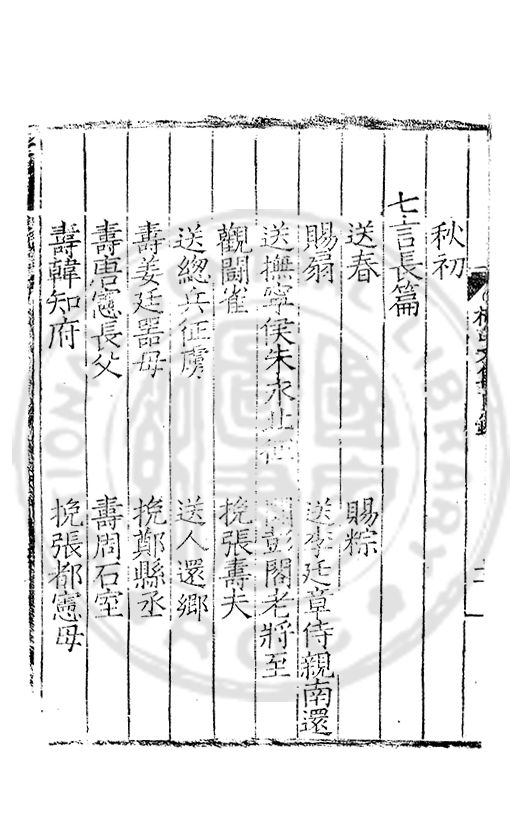 秋初
七言長篇
送春
賜粽
賜扇
送李廷章侍親南還
送撫寧侯朱永北征
彭閣老將至
觀鬭雀
挽張壽夫
送總兵征虜
送人還鄉
壽姜廷器母
挽鄭縣丞
壽唐憲長父
壽周石室
壽韓知府
挽張都憲母